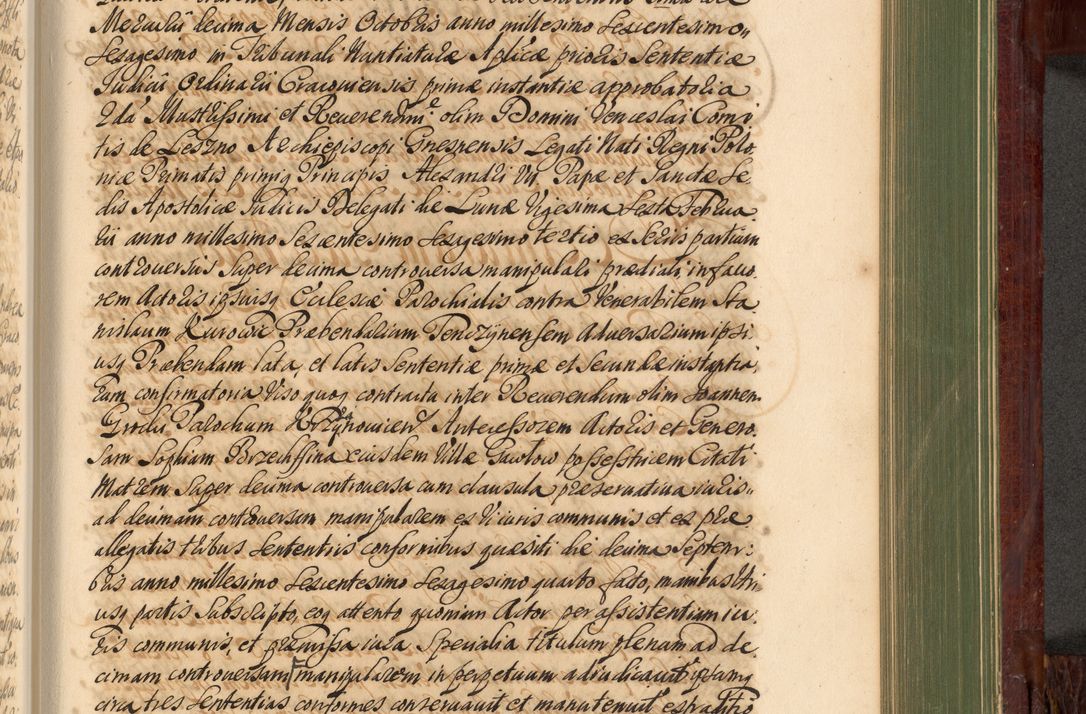 Mercurii decima Mensis Octobris anno millesimo sexcentesimo
sexagesimo in Tribunali Nuntiaturæ Aplicæ prioris Sententiæ
Judicii Ordinarii Cracoviensis primæ instantiæ approbatoria
2da Illustrissimi et Reverendmi olim Domini Venceslai Comi
tis de Leszno Archiepiscopi Gnesnensis Legati Nati Regni Polo
niæ Primatis primiq Principis Alexandri VII Papæ et Sanctæ Se
dis Apostolicæ Judicis Delegati die Lunæ Vigesima Sexta Februa
rii anno millesimo Sexcentesimo sexagesimo tertio ex seriis partium
controversiis super decima controversa manipulali prædiali in favo
rem Actoris ipsiusq Ecclesiæ Parochialis contra Venerabilem Sta
nislaum Kurowic Præbendarium Tenczynensem Adversarium ipsi
usq Præbendam lata, et latis Sententiæ primæ et Secundæ instantia
rum confirmatoria Viso quoq contractu inter Reverendum olim Joannem
Parochum Antecessorem Actoris et Genero
sam Sophiam eiusdem Villæ Gawlow possestricem Citati
Matrem super decima controversa cum clausula præservativa iuris
ad decimam controversam manipularem ex Vi iuris communis et ex præ
allegatis tribus Sententiis conformibus quæsiti die decima Septem
bris anno millesimo sexcentesimo sexagesimo quarto facto, manibus Utri
usq partis subscripto, eoq attento quoniam Actor per assistentiam iu
ris communis, et præmissa iura specialia titulum plenam ad de
cimam controversam manipularem in perpetuum adiudicavit ipsamq
circa tres Sententias conformes conservavit et manutenuit